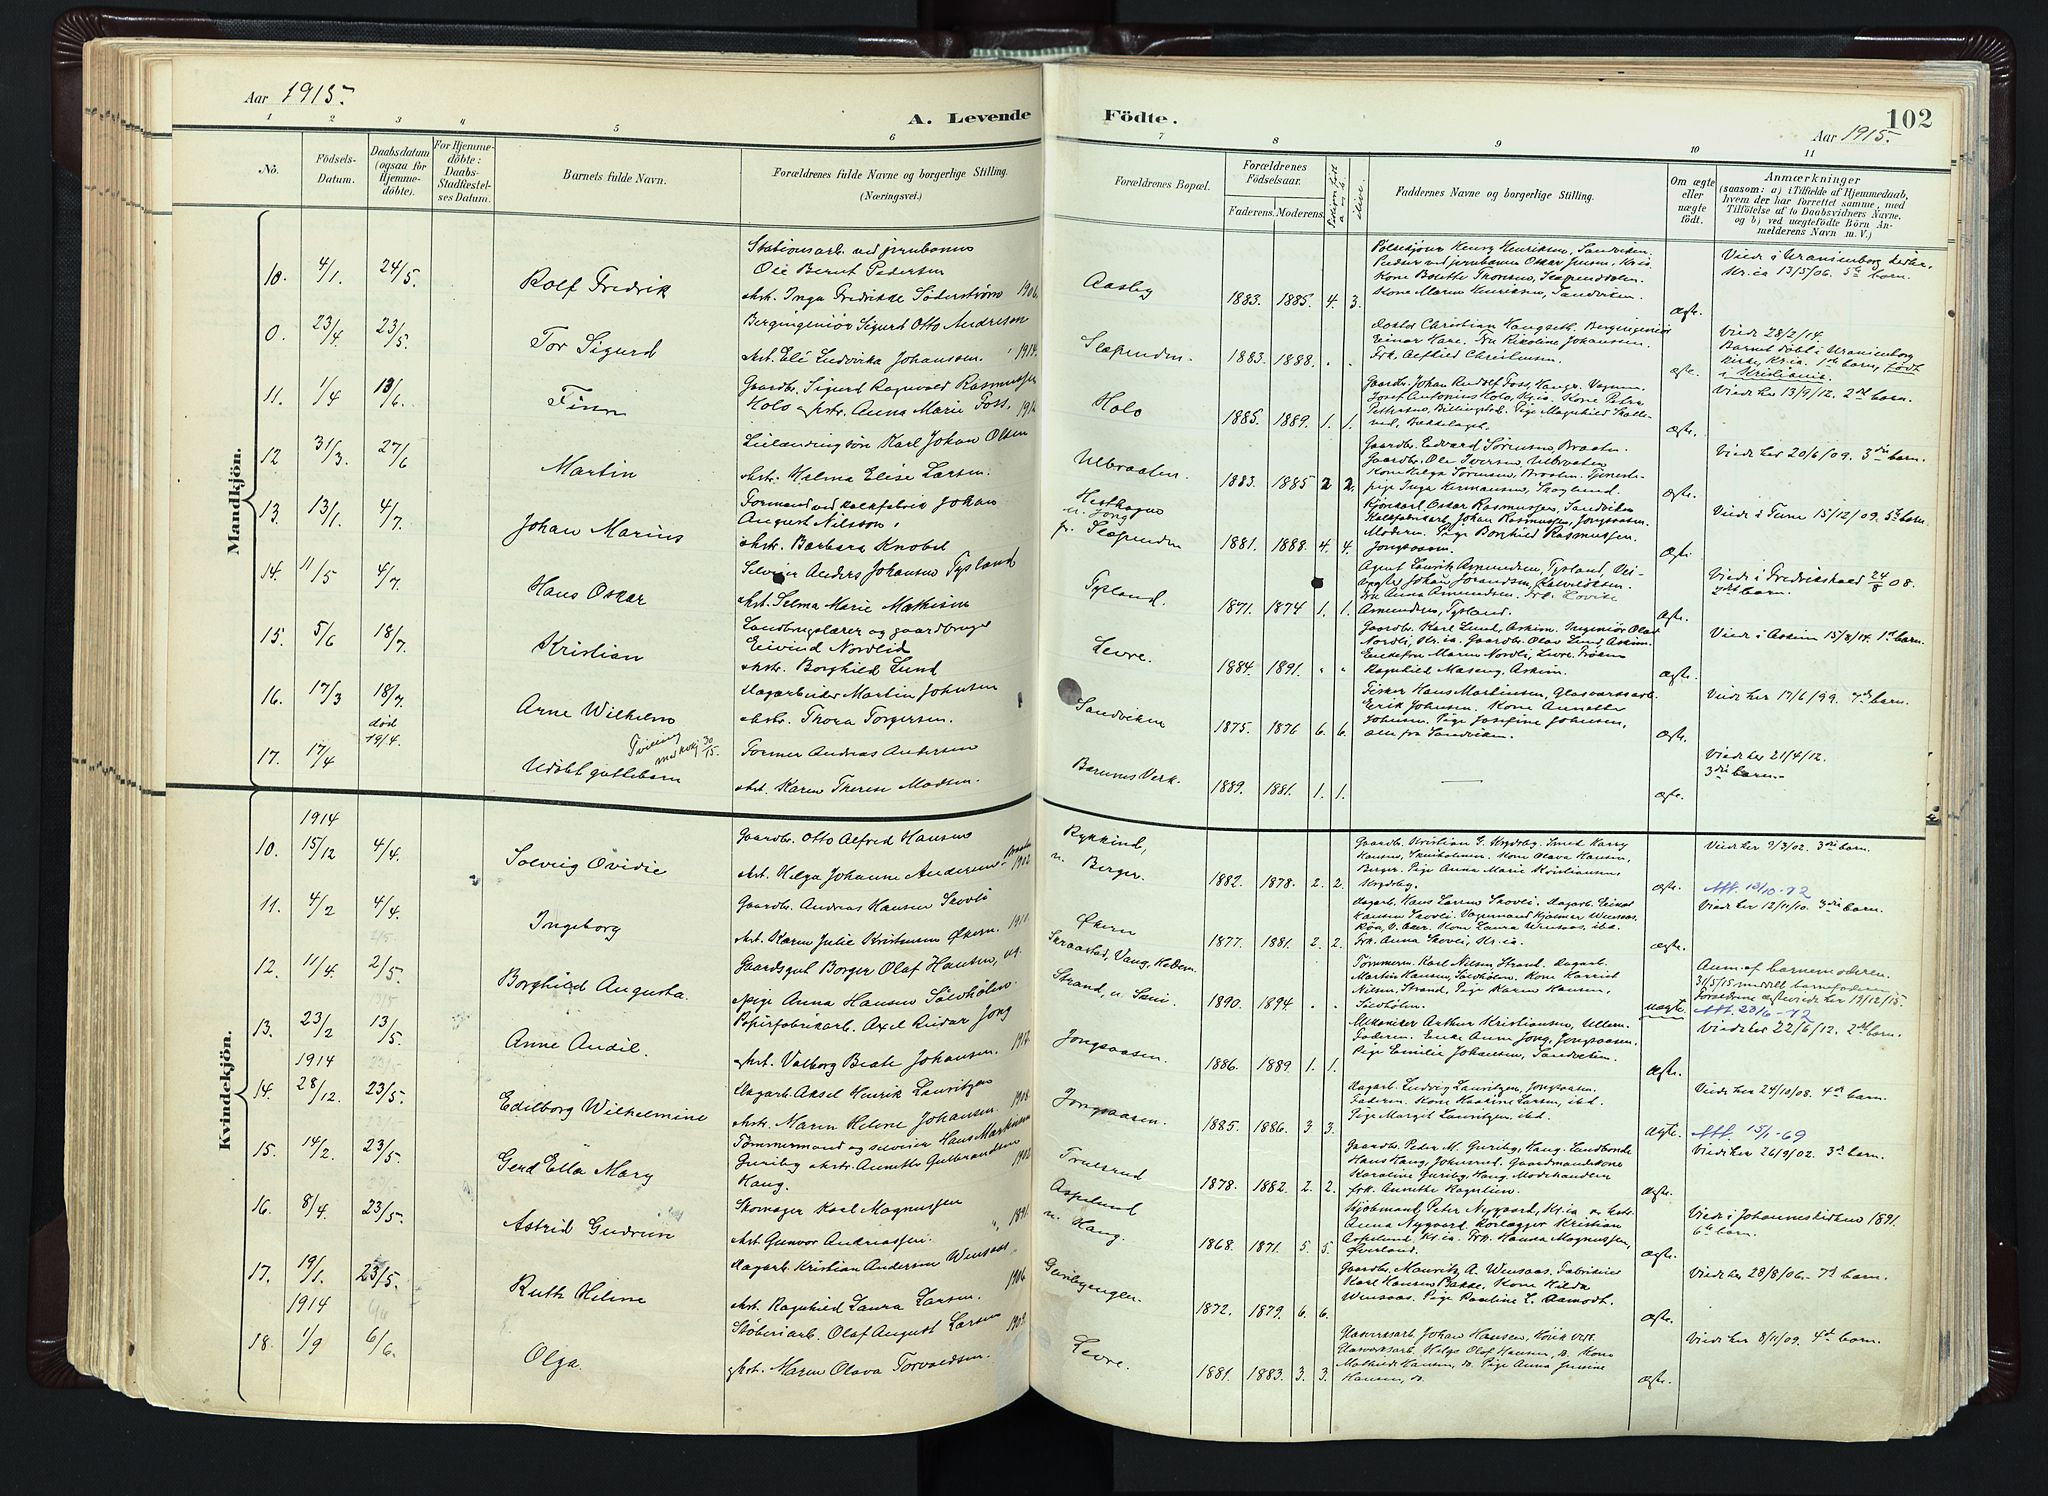 Aar 1915.
A. Levende
Födte.
102
Aar 1915.
1 2 3 4 5 6 7 8 9 10 11
No.
Födsels-
Datum.
Daabsdatum
(ogsaa for
Hjemme-
döbte).
For Hjemme-
döbte:
Daabs-
Stadfæstel-
ses Datum.
Barnets fulde Navn.
Forældrenes fulde Navne og borgerlige Stilling.
(Næringsvei.)
Forældrenes Bopæl.
Forældrenes
Födselsaar.
Faderens. Moderens.
Faddernes Navne og borgerlige Stilling.
Om ægte
eller
uægte
födt.
Anmærkninger
(saasom: a) i Tilfælde af Hjemmedaab,
hvem der har forrettet samme, med
Tilföielse af to Daabsvidners Navne,
og b) ved uegtefödte Börn An-
melderens Navn m. V.)
Mandkjön.
10. 4/1. 24/5. Rolf Fredrik
Stationsarb. ved jernbanen
Ole Bernt Pedersen
Inga Fredrikke Söderström 1906.
Aasby 1883. 1885. 4. 3.
Kone Maren Henriksen, Sandviken.
ægte.
Viede i Uranienborg kirke,
Kr.ia 13/5/06. 5te barn.
0. 23/4. 23/5. Tor Sigurd
Bergingeniör Sigurd Otto Andresen
Eli Ludvikka Johanssen. 1914.
Slependen. 1883. 1888. . .
Doktor Christian Haugseth. Bergingeniör
Einar Hare. Fru Nikoline Johanssen.
ægte.
Viede 28/2/14.
Barnet döbt i Uranienborg
kirke, Kr.ia. 1ste barn, födt
i Kristiania.
11. 1/4 13/6. Finn
Gaardbr. Sigurd Ragnvald Rasmussen
Holo og hstr. Anna Marie Foss, 1912
Holo 1885. 1889. 1. 1.
Gaardbr. Johan Rudolf Foss, Haugr. Vognm.
Josef Antonius Holo, Kr.ia. Kone Petra
ægte.
Viede her 13/9/12. 2det barn.
12 31/3. 27/6 Martin
Karl Johan Olsen
Halma Elise Larsen.
Ulbraaten. 1883. 1885 2 2.
Gaardbr. Edvard Sörensen, Braaten
Gaardbr. Ole Iversen, Ulbraaten
Kone Helga Sörensen, Braaten. Tjeneste-
pige Inga Hermansen, Skogland.
ægte.
Viede her 20/6/09. 3die barn.
13. 13/1. 4/7. Johan Marius
Formand ved kalkfabrik Johan
August Nilsson,
Barbara Knobel
Slependen 1881. 1888. 4. 4.
Kjörekarl Oskar Rasmussen, Sandviken
Kalkfabrikarb. Johan Rasmussen, Jongsaasen.
Moderen. Pige Borghild Rasmussen.
Jongsaasen.
ægte.
Viede i Tune 15/12/09. 5te barn.
14. 11/5 4/7. Hans Oskar
Selveier Anders Johansen Tysland
Selma Marie Mathisen
Tysland. 1871. 1874 1. 1.
Agent Lauvik Amundsen, Tysland,
Amundsen, Tysland.
ægte.
Viede i Fredrikshald 24/8 08.
2det barn.
15. 5/6 18/7. Kristian
Landbrugslærer og gaardbruger
Eivind Nordlid
Borghild Lund
Levre. 1884. 1891.
Gaardbr. Karl Lund, Askim. Ingeniör Olav
Nordli, Kr.ia. Gaardbr. Olav Lund, Askim.
Enkefru Maren Nordli, Levre. Fröken
Ragnhild Maseng, Askim.
ægte.
Viede i Askim 15/8/14. 1ste barn.
16. 17/3 18/7. Arne Wilhelm
Dagarbeider Martin Johnsen
Thora Torgersen.
Sandviken 1875. 1876 6. 6.
Fisker Hans Martinsen, Glasværksarb.
Erik Johnsen. Kone Annette
Johnsen. Pige Josefine Johnsen,
alle fra Sandviken.
ægte.
Viede her 17/6/99. 7de barn.
17. 17/4 död 19/4. Udöbt guttebarn
Tvilling
Former Andreas Andersen
Karen Therese Madsen.
Bærums Verk. 1889. 1881. 1. 1.
ægte.
Viede her 21/4/12.
3die barn.
Kvindekjön.
10. 1914 15/12 4/4. Solveig Ovidie
Gaardbr. Otto Alfred Hansen
Helga Johanne Andersen 1902.
Rykkind, n. Berger. 1882. 1878. 2. 2.
Hansen, Skuiholmen. Kone Olava Hansen,
Berger. Pige Anna Marie Kristiansen
ægte.
Viede her 9/3/02. 3die barn.
Att. 13/10-72
11. 4/2 4/4. Ingeborg
Gaardbr. Andreas Hansen Skovli
Karen Julie Kristensen Økern. 1910.
Økern 1877. 1881. 2. 2.
Dagarb. Hans Larsen Skovli. Dagarb. Eirik
Frk. Anna Skovli, Kr.ia.
ægte.
Viede her 12/11/10. 3die barn.
12. 11/4. 2/5. Borghild Augusta.
Gaardsgut Borger Olaf Hansen, ug.
pige Anna Hansen Sölvhölen.
Skraastad, Vang, Hedem.
Strand, n. Sem. 1890. 1894. . .
Tömmerm. Karl Nilsen, Strand. Dagarb.
Martin Hansen, Sölvhölen. Kone Harriet
Nilsen, Strand, Pige Karen Hansen,
Sölvhölen.
uægte.
Anm. af barnemoderen.
Forældrene ægteviede her 19/12/15.
Att. 20/6-72
13. 23/2 13/5. Anne Andil.
Papirfabrikarb. Axel Reidar Jong
Valborg Beate Johansen. 1912.
Jongsaasen. 1886. 1889. 1. 1.
Mekaniker Arthur Kristiansen, Ullern.
Faderen. Enke Anne Jong, Jongsaasen.
Pige Emilie Johansen, Sandviken.
ægte.
Viede her 22/6/12. 2det barn.
14. 1914 28/12. 23/5. Edilborg Wilhelmine
Dagarb. Aksel Henrik Lauritzen
Maren Helene Johansen. 1908.
Jongsaasen. 1885. 1886. 3. 3.
Dagarb. Ludvig Lauritzen, Jongsaasen.
Faderen. Kone Haakine Larsen, ibd.
Pige Margit Lauritzen ibd.
ægte.
Viede her 24/10/08. 4de barn.
Att. 15/1-69
15. 14/2. 23/5. Gerd Ella Mary
Tömmermand og selveier Hans Markusen
Guriby Annette Gulbrandsen 1902
Haug.
Trulsrud 1878. 1882. 2. 2.
Gaardbr. Peter M. Guriby, Haug. Landbonde
Hans Haug, Johnsrud. Gaardmandskone
Karoline Guriby, Haug. Modehandlerin
ægte.
Viede her 26/9/02. 3die barn.
16. 8/4. 23/5. Astrid Gudrun
Skomager Karl Magnussen
Gunvor Andreassen. 1891.
Aspelund n. Haug. 1868. 1871. 5. 5.
Kjöbmand Peter Nygaard, Kr.ia
Anna Nygaard. Rörlægger Kristian
Aspelund, Kr.ia. Frk. Hansa Magnussen,
Øverland.
ægte.
Viede i Johanneskirken 1891.
6te barn.
17. 19/1. 23/5. Ruth Helene
Dagarb. Kristian Andersen Wensaas.
Ragnhild Laura Larsen. 1906.
Guribyengen. 1872. 1879. 6. 6.
Gaardbr. Mauritz A. Wensaas. Fabrikeier
Karl Hansen Bakke. Kone Hilda
Wensaas. Pige Pauline L. Aamodt.
ægte.
Viede her 28/8/06. 7de barn.
18. 1914 1/9 6/6. Olga.
Stöberiarb. Olaf August Larsen 1909.
Maren Olava Torvaldsen.
Levre. 1881. 1883. 3. 3.
Glasverksarb. Johan Hansen, Hövik verk.
Glasverksarb. Helge Olaf Hansen, do. Kone
Mathilde Hansen, do. Pige Anna Jensine
Hansen, do.
ægte.
Viede her 8/11/09. 4de barn.